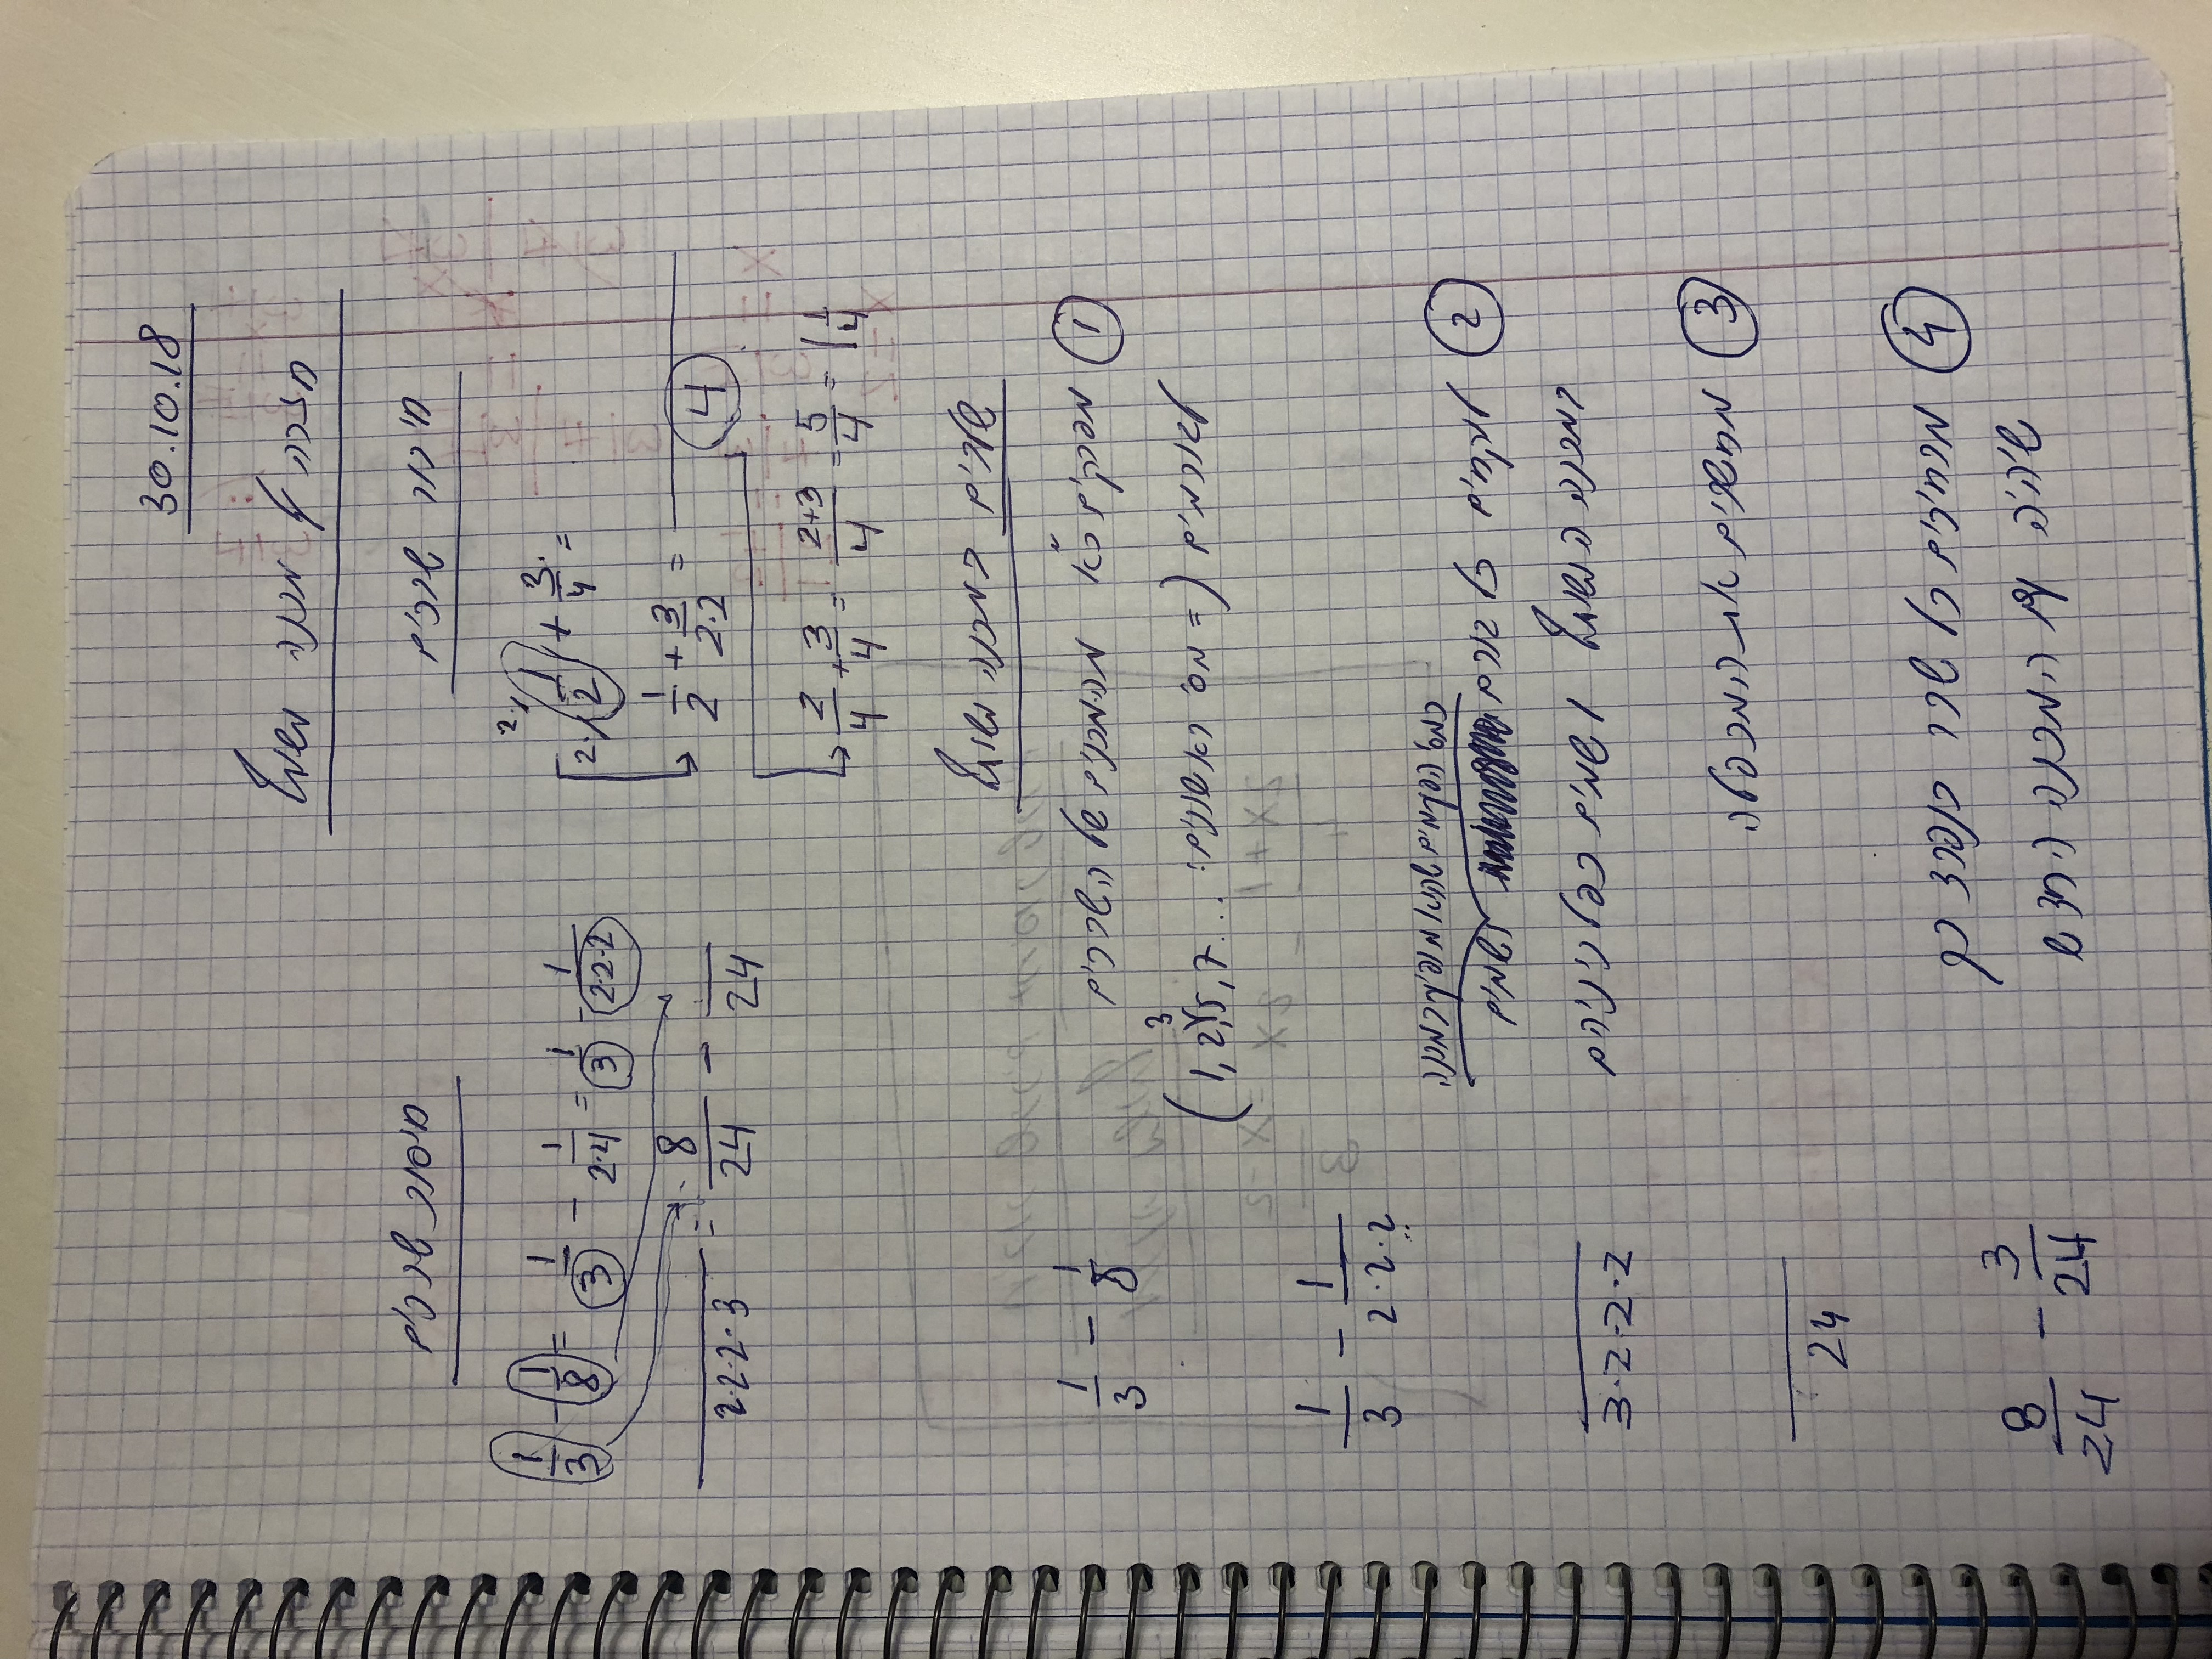 30.10.18
חזרה על מכנה משותף
חיבור שברים
2· 1/2 ·2 + 3/4 =
1/2 + 3/(2·2) = ―/4
2/4 + 3/4 = (2+3)/4 = 5/4 = 1 1/4
חיסור שברים
1/3 - 1/8 = 1/3 - 1/(2·4) = 1/3 - 1/(2·2·2)
―/(2·2·2·3) = 8/24 - ―/24
שלבים במכנה משותף
① מפרקים כ"א מהמכנים של השברים
לגורמים (= מס' ראשוניים: 1, 2, 3, 5, 7 ...)
1/3 - 1/8
1/3 - 1/(2·2·2)
② לוקחים כל גורם כמס' הפעמים שהוא מופיע במכנה ושמים
במכנה המשותף ושמים כפל ביניהם
―/(3·2·2·2)
③ מחשבים את המכפלה
―/24
④ מרחיבים כל שבר בנפרד כך
שיהיה עם המכנה החדש
8/24 - 3/24